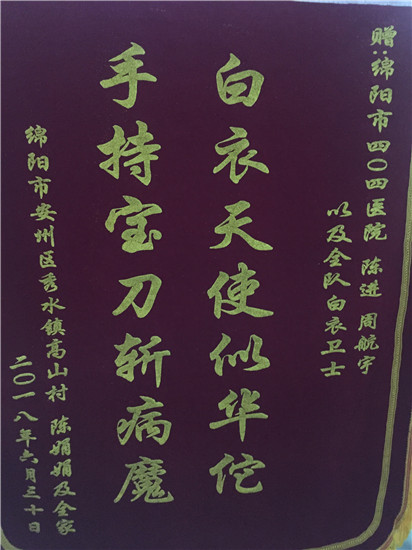 赠:绵阳市四〇四医院 陈进 周航宇
以及全队白衣卫士
白衣天使似华佗
手持宝刀斩病魔
绵阳市安州区秀水镇高山村 陈娟娟及全家
二〇一八年六月三十日